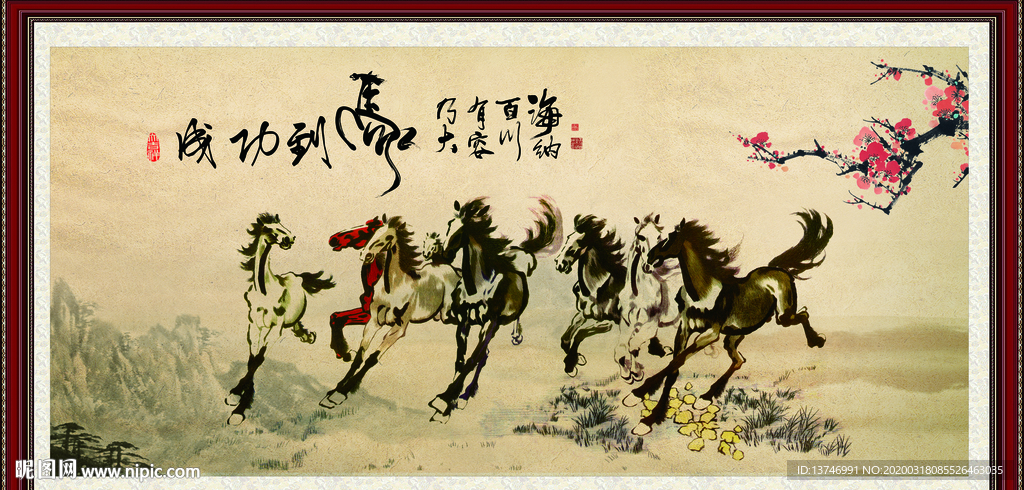 馬到功成
海纳
百川
有容
乃大
昵图网 www.nipic.com
ID:13746991 NO:20200318085526463035